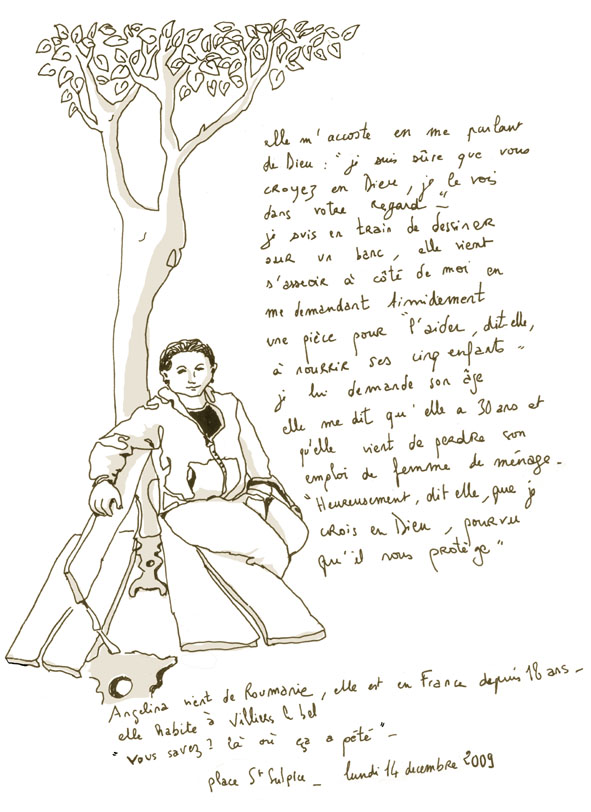 elle m'accoste en me parlant
de Dieu : "je suis sûre que vous
croyez en Dieu, je le vois
dans votre regard" –
je suis en train de dessiner
sur un banc, elle vient
s'asseoir à côté de moi en
me demandant timidement
une pièce pour "l'aider, dit-elle,
à nourrir ses cinq enfants"
je lui demande son âge
elle me dit qu'elle a 30 ans et
qu'elle vient de perdre son
emploi de femme de ménage –
"Heureusement, dit elle, que je
crois en Dieu, pourvu
qu'il nous protège"
Angelina vient de Roumanie, elle est en France depuis 18 ans –
elle habite à Villiers le bel
"vous savez ? là où ça a pété" –
place St Sulpice – lundi 14 decembre 2009